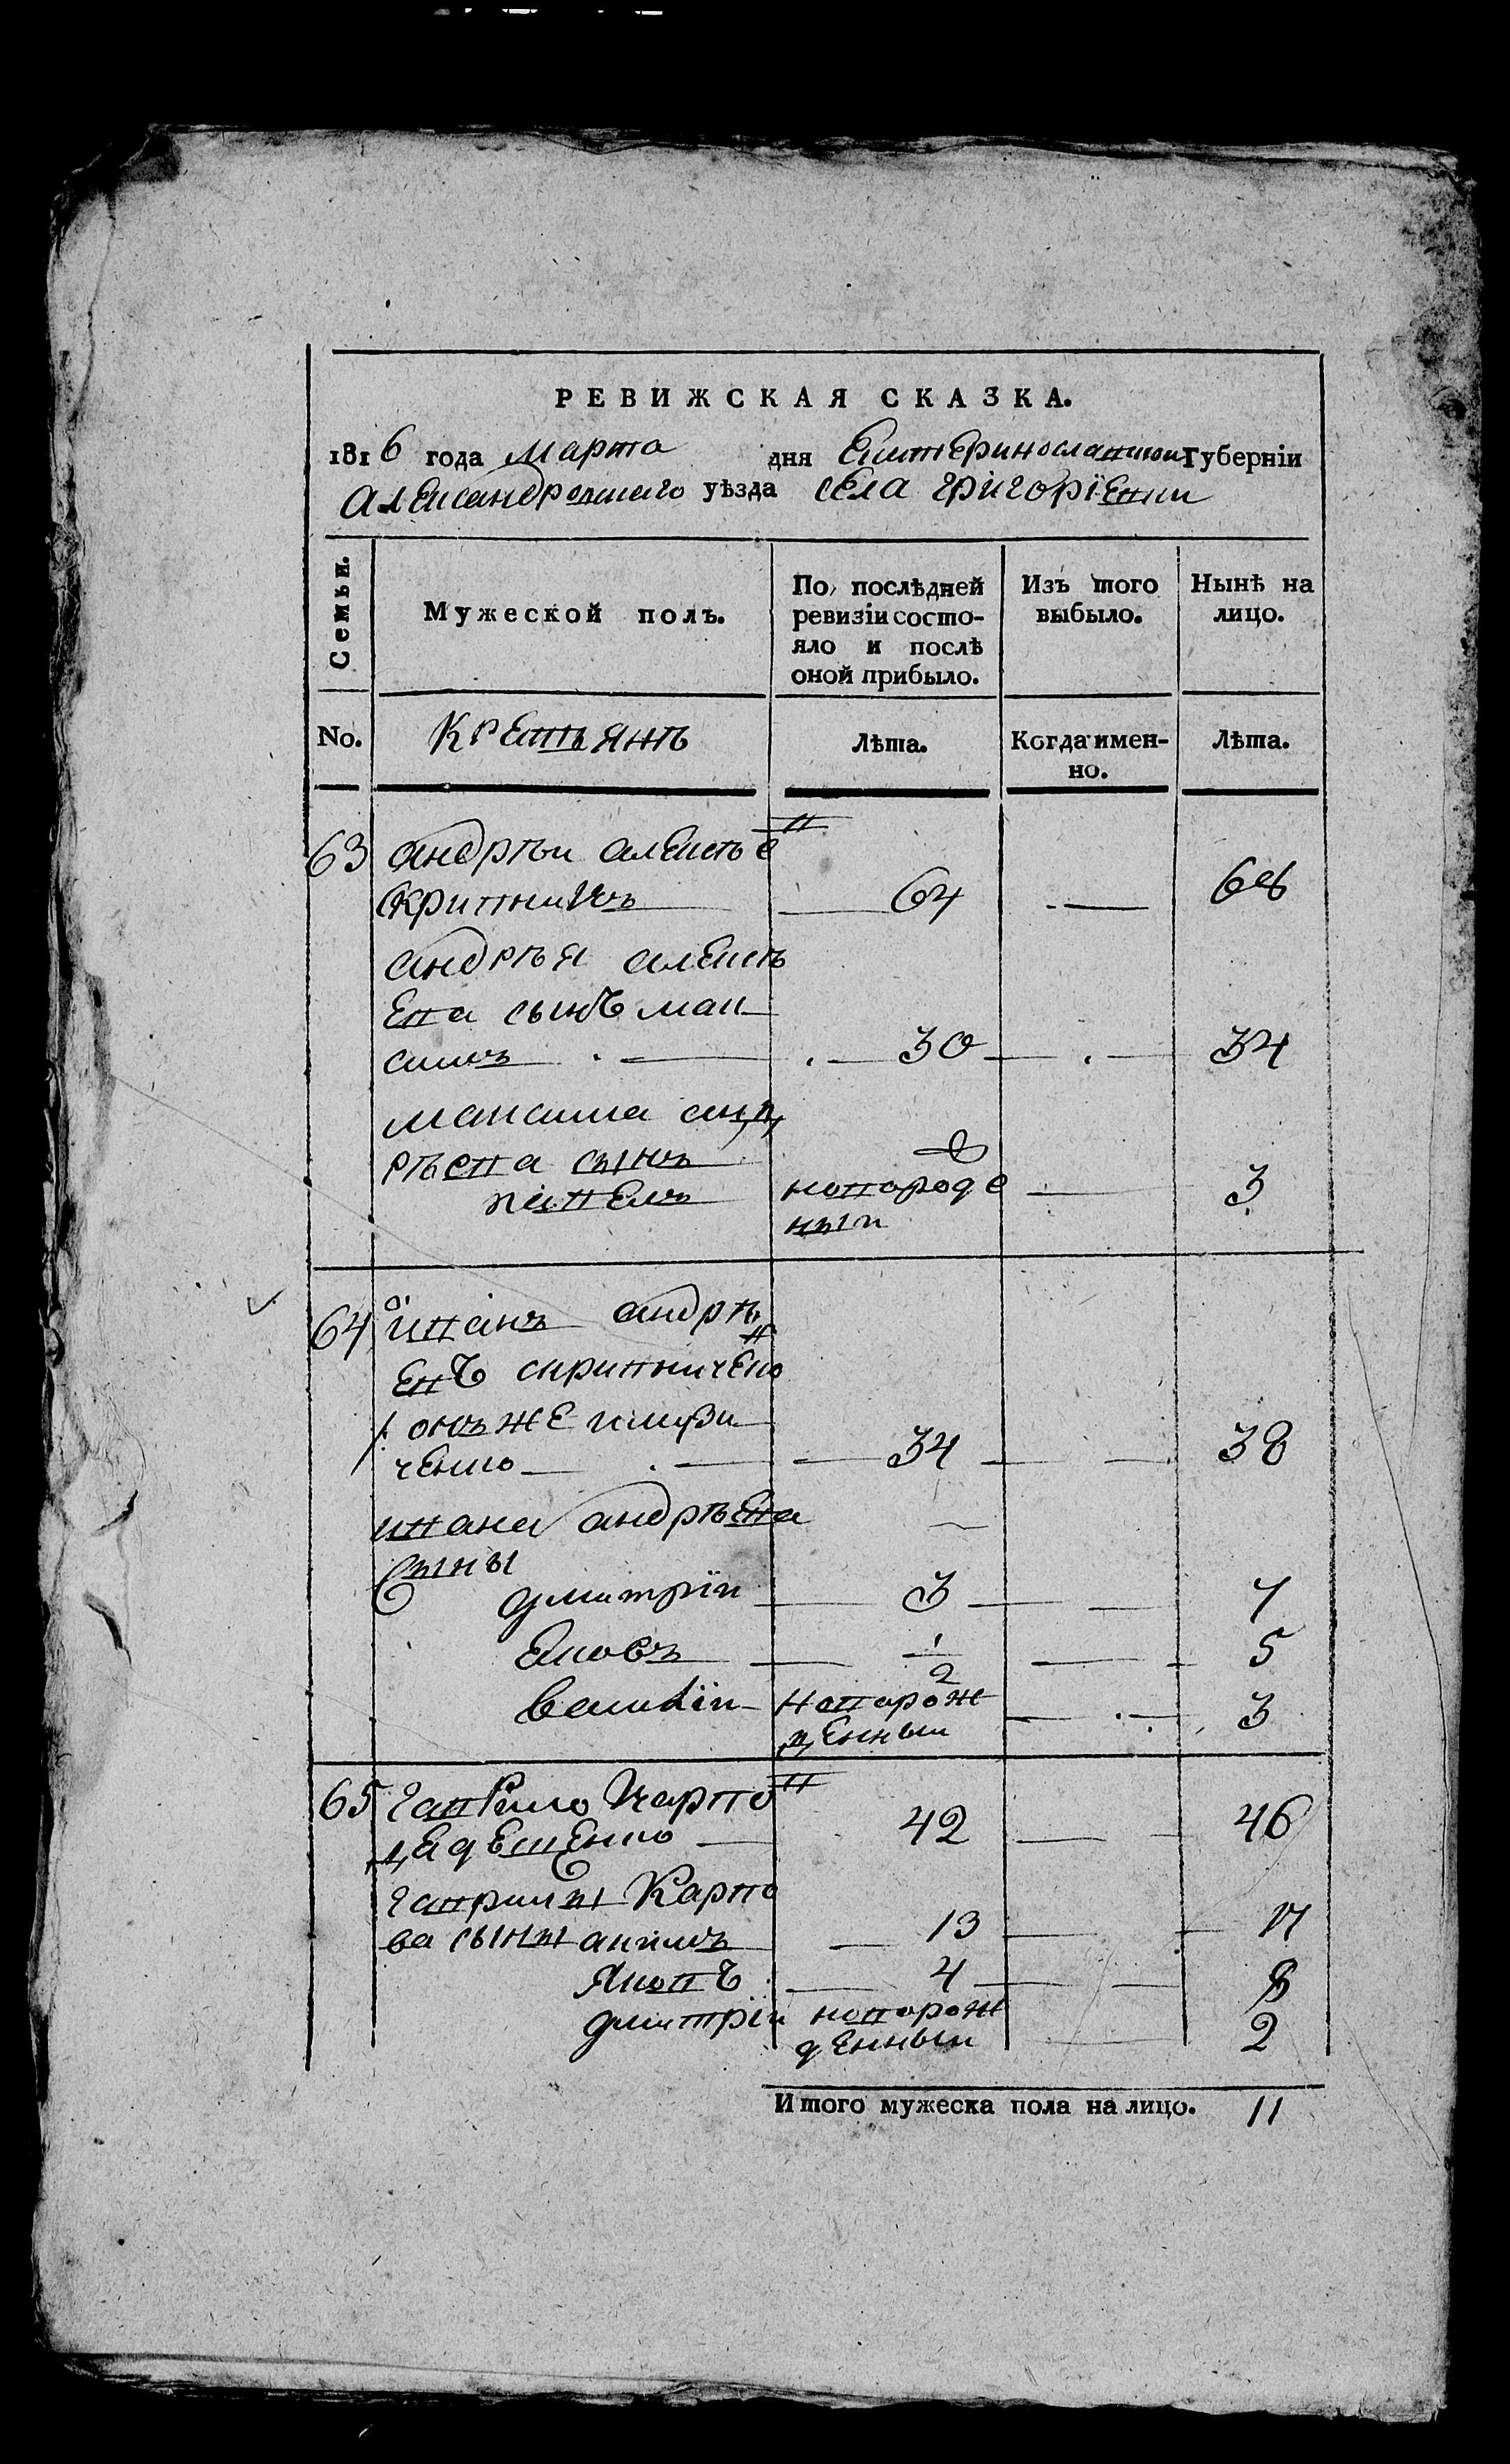 РЕВИЖСКАЯ СКАЗКА.
1816 года марта дня Екатеринославской Губерніи
Александровскаго уѣзда села григорієвки
Семьи. Мужеской полъ. По послѣдней ревизіи состояло и послѣ оной прибыло. Изъ того выбыло. Нынѣ на лицо.
No. Крестьянъ Лѣта. Когда имен-но. Лѣта.
63 андрѣи алексѣев
скрипникъ 64 — 68
андрѣя алексѣ
ева сынъ мак
симъ — 30 — 34
максима анд
рѣева сынъ
павелъ новороде — 3
ныи
64 иванъ андрѣ
евъ скрипниченко
/: онъ же
ченко — 34 — 38
ивана андрѣева
сыны
дмитріи — 3 — 7
яковъ — 1 — 5
василіи новорож — 3
денныи
65 гаврило Карпов 42 — 46
гаврилы Карпо
ва сыны акимъ — 13 — 17
яковъ — 4 — 8
дмитріи новорож
денныи 2
Итого мужеска пола на лицо. 11